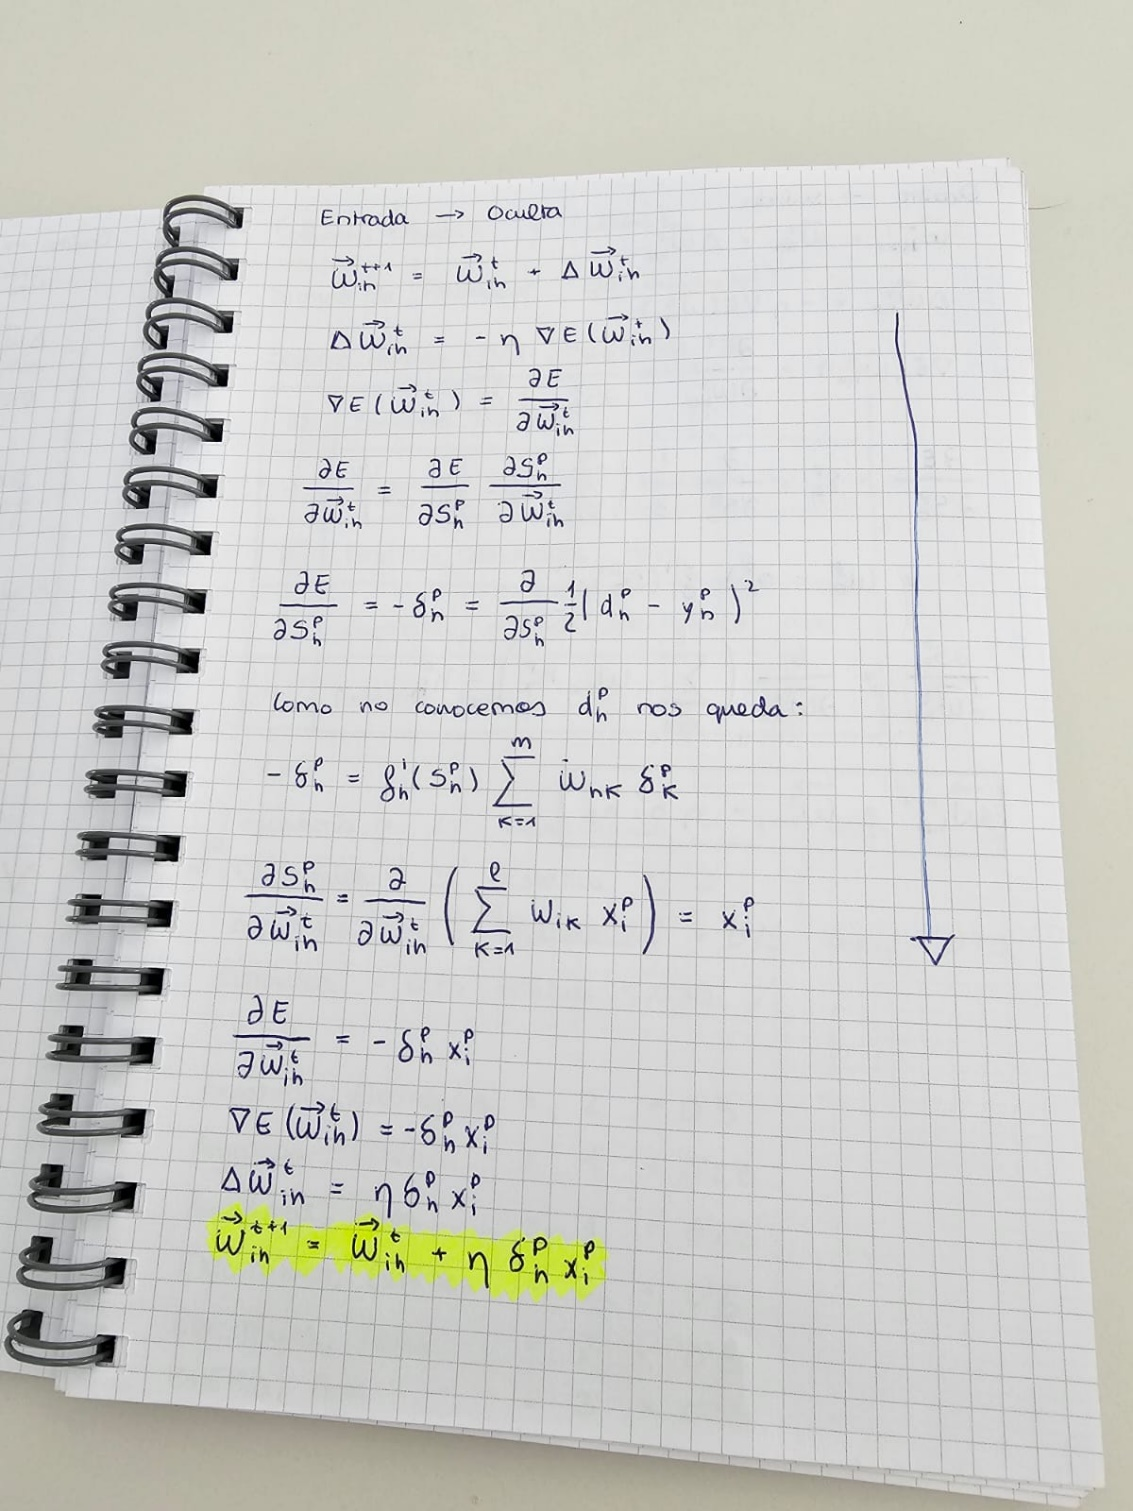 Entrada → Oculta
$\vec{w}_{ih}^{t+1} = \vec{w}_{ih}^{t} + \Delta \vec{w}_{ih}^{t}$
$\Delta \vec{w}_{ih}^{t} = -\eta \nabla E(\vec{w}_{ih}^{t})$
$\nabla E(\vec{w}_{ih}^{t}) = \frac{\partial E}{\partial \vec{w}_{ih}^{t}}$
$\frac{\partial E}{\partial \vec{w}_{ih}^{t}} = \frac{\partial E}{\partial S_h^p} \frac{\partial S_h^p}{\partial \vec{w}_{ih}^{t}}$
$\frac{\partial E}{\partial S_h^p} = -\delta_h^p = \frac{\partial}{\partial S_h^p} \frac{1}{2} (d_h^p - y_h^p)^2$
Como no conocemos $d_h^p$ nos queda:
$-\delta_h^p = f_h'(S_h^p) \sum_{k=1}^{m} w_{hk} \delta_k^p$
$\frac{\partial S_h^p}{\partial \vec{w}_{ih}^{t}} = \frac{\partial}{\partial \vec{w}_{ih}^{t}} \left( \sum_{k=1}^{l} w_{ik} x_i^p \right) = x_i^p$
$\frac{\partial E}{\partial \vec{w}_{ih}^{t}} = -\delta_h^p x_i^p$
$\nabla E(\vec{w}_{ih}^{t}) = -\delta_h^p x_i^p$
$\Delta \vec{w}_{ih}^{t} = \eta \delta_h^p x_i^p$
$\vec{w}_{ih}^{t+1} = \vec{w}_{ih}^{t} + \eta \delta_h^p x_i^p$